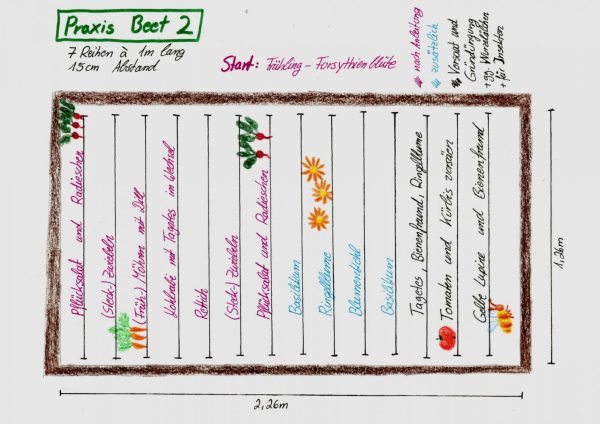 Praxis Beet 2
7 Reihen à 1m lang
15cm Abstand
Start: Frühling - Forsythienblüte
nach Anleitung
zusätzlich
Vorsaat und
Gründüngung
+gg. Wurzelälchen
+ für Insekten
Pflücksalat und Radieschen
(Steck-) Zwiebeln
(Früh-) Möhren mit Dill
Kohlrabi mit Tagetes im Wechsel
Rettich
(Steck-) Zwiebeln
Pflücksalat und Radieschen
Basilikum
Ringelblume
Blumenkohl
Basilikum
Tagetes, Bienenfreund, Ringelblume
Tomaten und Kürbis vorsäen
Gelbe Lupine und Bienenfreund
1,26m
2,26m